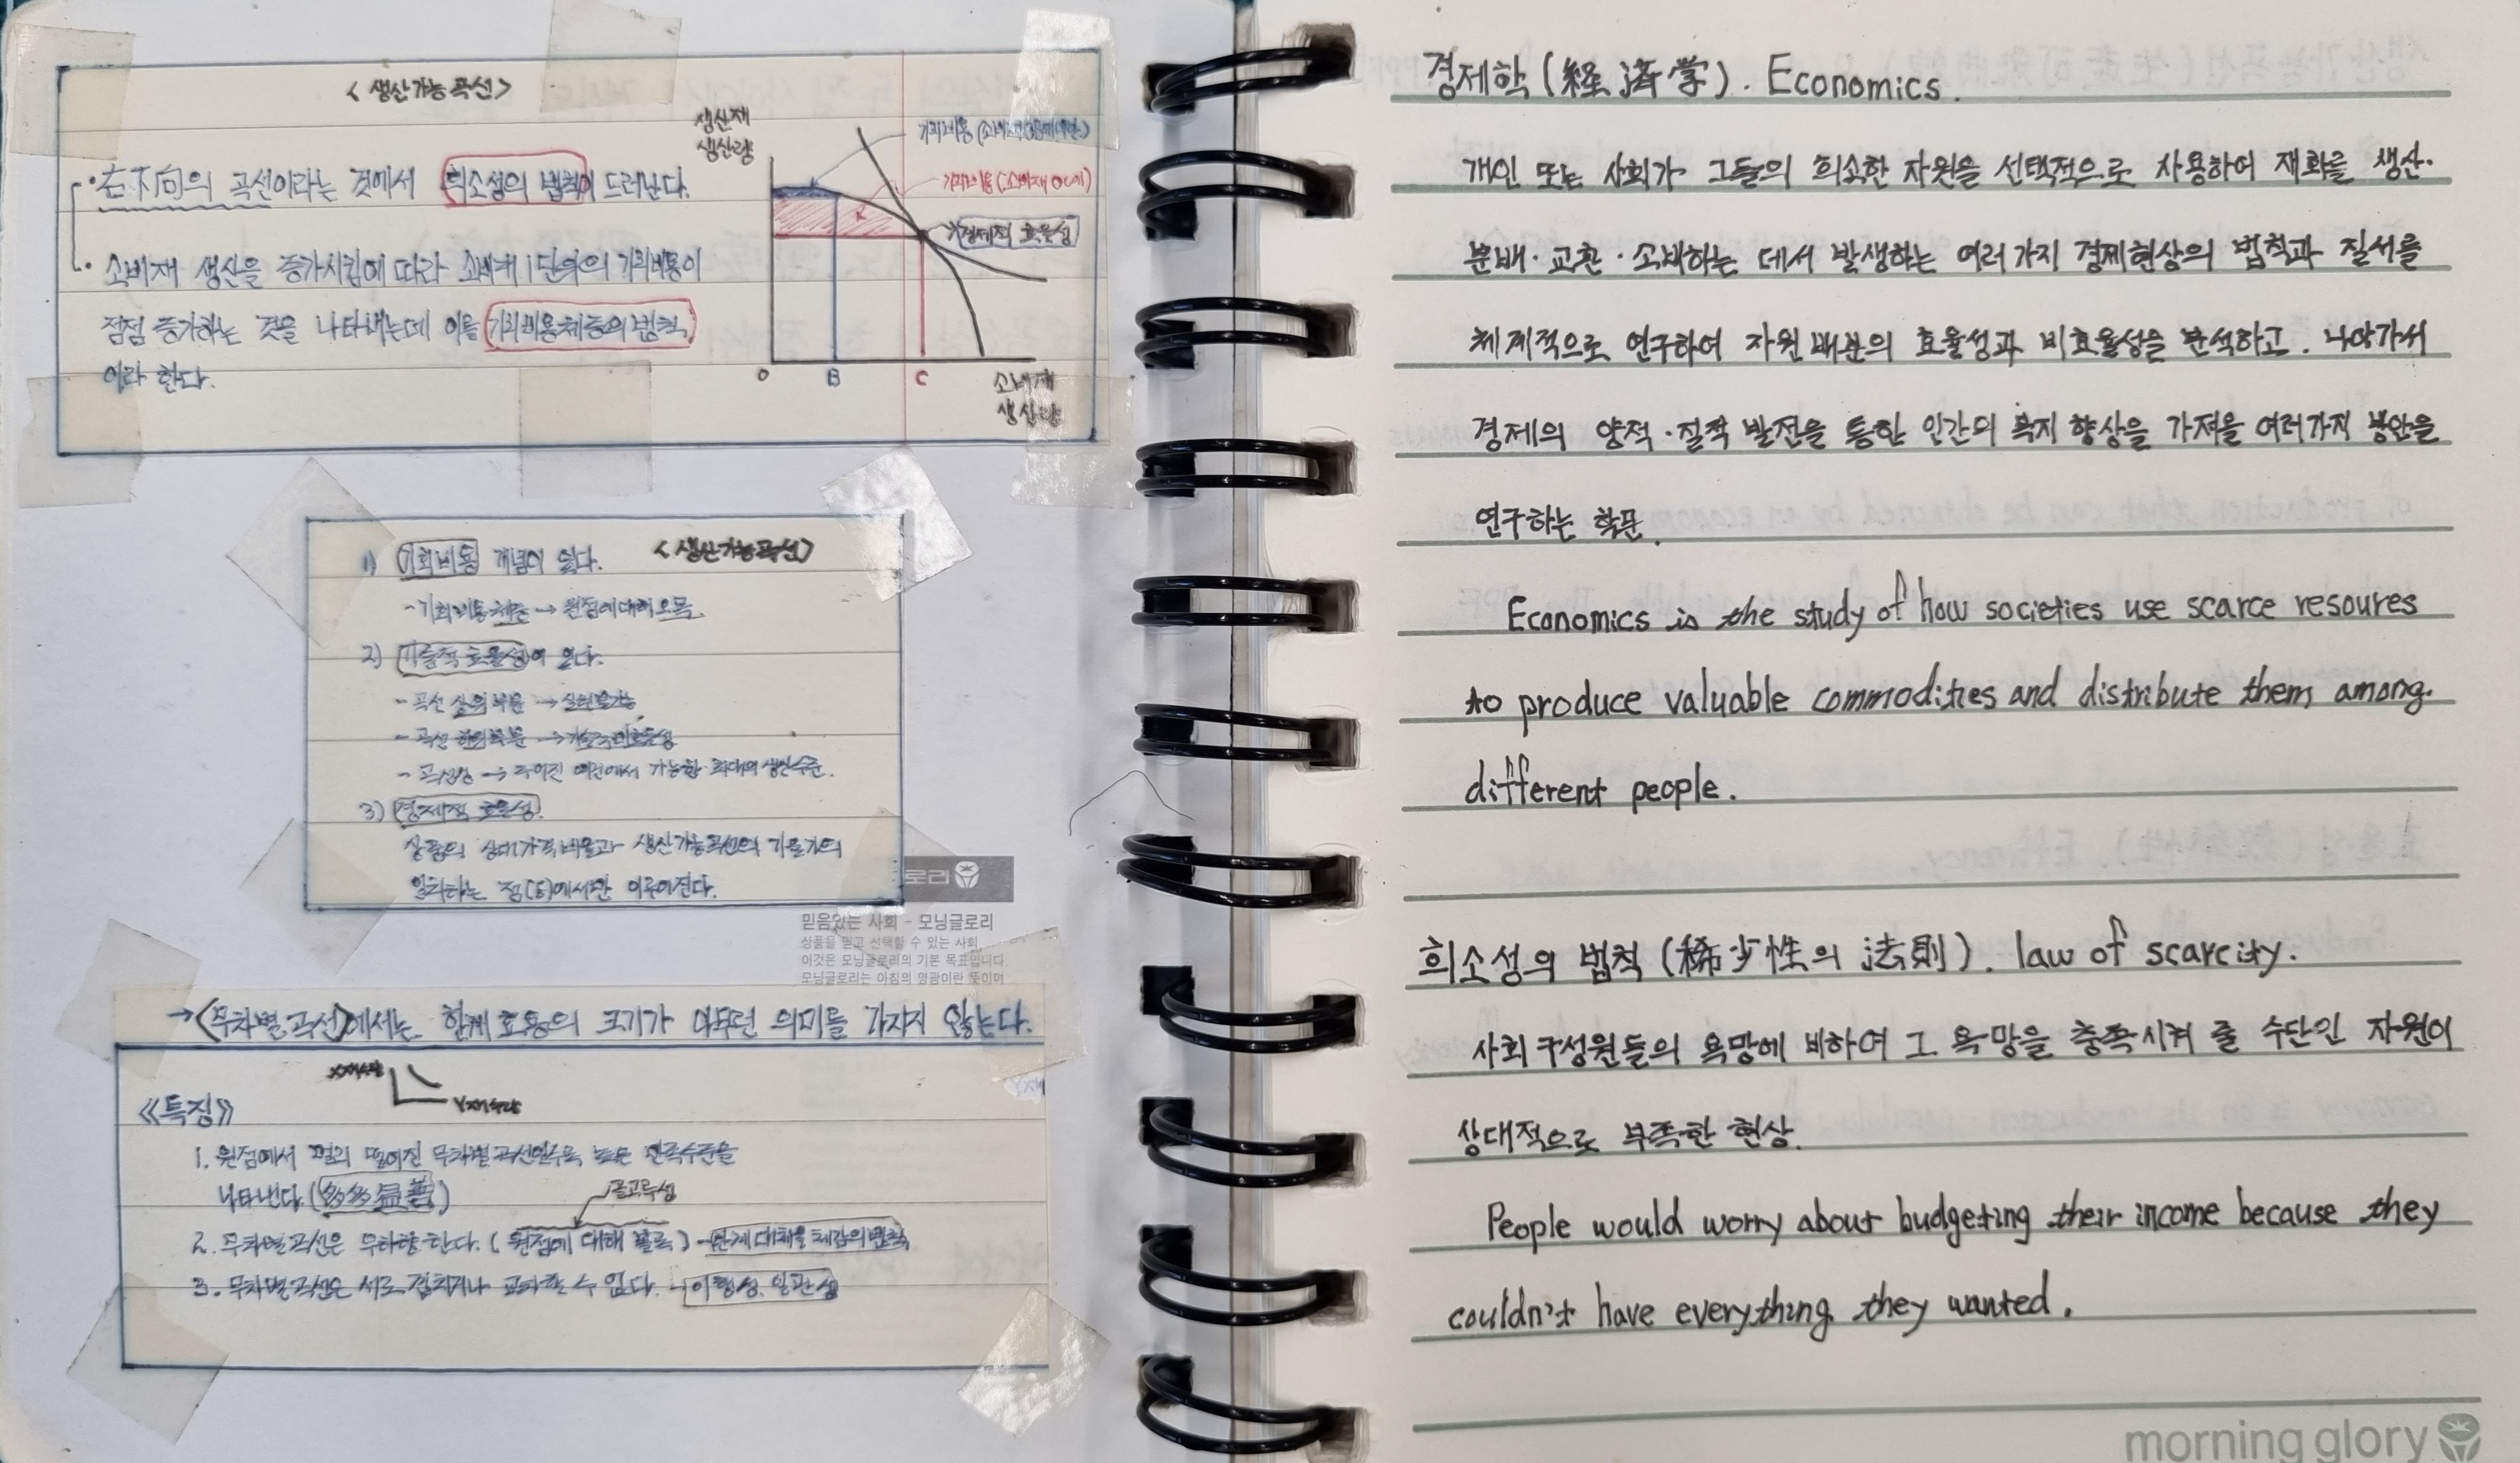 <생산가능곡선>
·右下向의 곡선이라는 것에서 희소성의 법칙이 드러난다.
· 소비재 생산을 증가시킴에 따라 소비재 1단위의 기회비용이
점점 증가하는 것을 나타내는데 이를 기회비용체증의 법칙
이라 한다.
생산재
생산량
기회비용(소비재
기회비용(소비재 0C개)
경제적 효율성
0 B C
소비재
생산량
<생산가능곡선>
1) 기회비용 개념이 있다.
- 기회비용 체증 → 원점에 대해 오목.
2) 기술적 효율성이 있다.
- 곡선 상위부분 → 실현불가능
- 곡선 하위부분 → 기술적 비효율성
- 곡선상 → 주어진 여건에서 가능한 최대의 생산수준.
3) 경제적 효율성.
상품의 상대가격비율과 생산가능곡선의 기울기의
일치하는 점(E)에서만 이루어진다.
로리
믿음있는 사회 - 모닝글로리
상품을 믿고 선택할 수 있는 사회,
이것은 모닝글로리의 기본 목표입니다.
모닝글로리는 아침의 영광이란 뜻이며
→<무차별곡선>에서는 한계효용의 크기가 아무런 의미를 가지지 않는다.
X재수량
Y재수량
《특징》
1. 원점에서 멀리 떨어진 무차별곡선일수록 높은 만족수준을
나타낸다.(多多益善)
골고루성
2. 무차별곡선은 우하향한다. (원점에 대해 볼록) - 한계대체율체감의 법칙
3. 무차별곡선은 서로 겹치거나 교차할 수 없다. - 이행성. 일관성
경제학(経済学). Economics.
개인 또는 사회가 그들의 희소한 자원을 선택적으로 사용하여 재화를 생산·
분배·교환·소비하는 데서 발생하는 여러가지 경제현상의 법칙과 질서를
체계적으로 연구하여 자원배분의 효율성과 비효율성을 분석하고. 나아가서
경제의 양적·질적 발전을 통한 인간의 복지 향상을 가져올 여러가지 방안을
연구하는 학문.
Economics is the study of how societies use scarce resoures
to produce valuable commodities and distribute them among.
different people.
희소성의 법칙(稀少性의 法則). law of scarcity.
사회구성원들의 욕망에 비하여 그 욕망을 충족시켜 줄 수단인 자원이
상대적으로 부족한 현상.
People would worry about budgeting their income because they
couldn't have everything they wanted.
morning glory